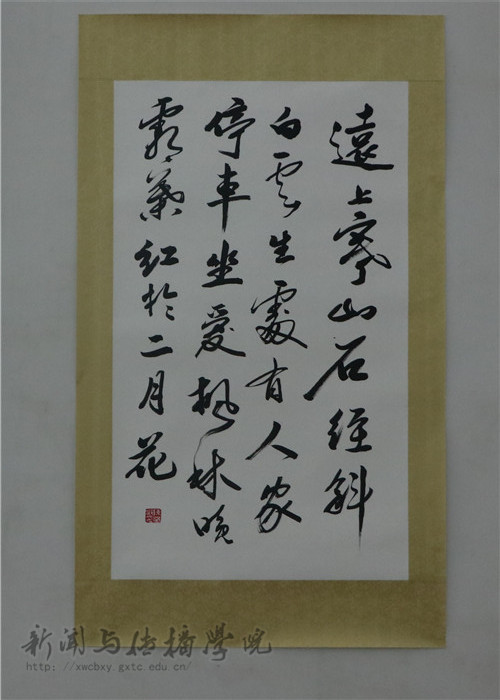 遠上寒山石經斜
白雲生處有人家
停車坐愛楓林晚
霜葉紅於二月花
新闻与传播学院
http://xwcbxy.gxtc.edu.cn/